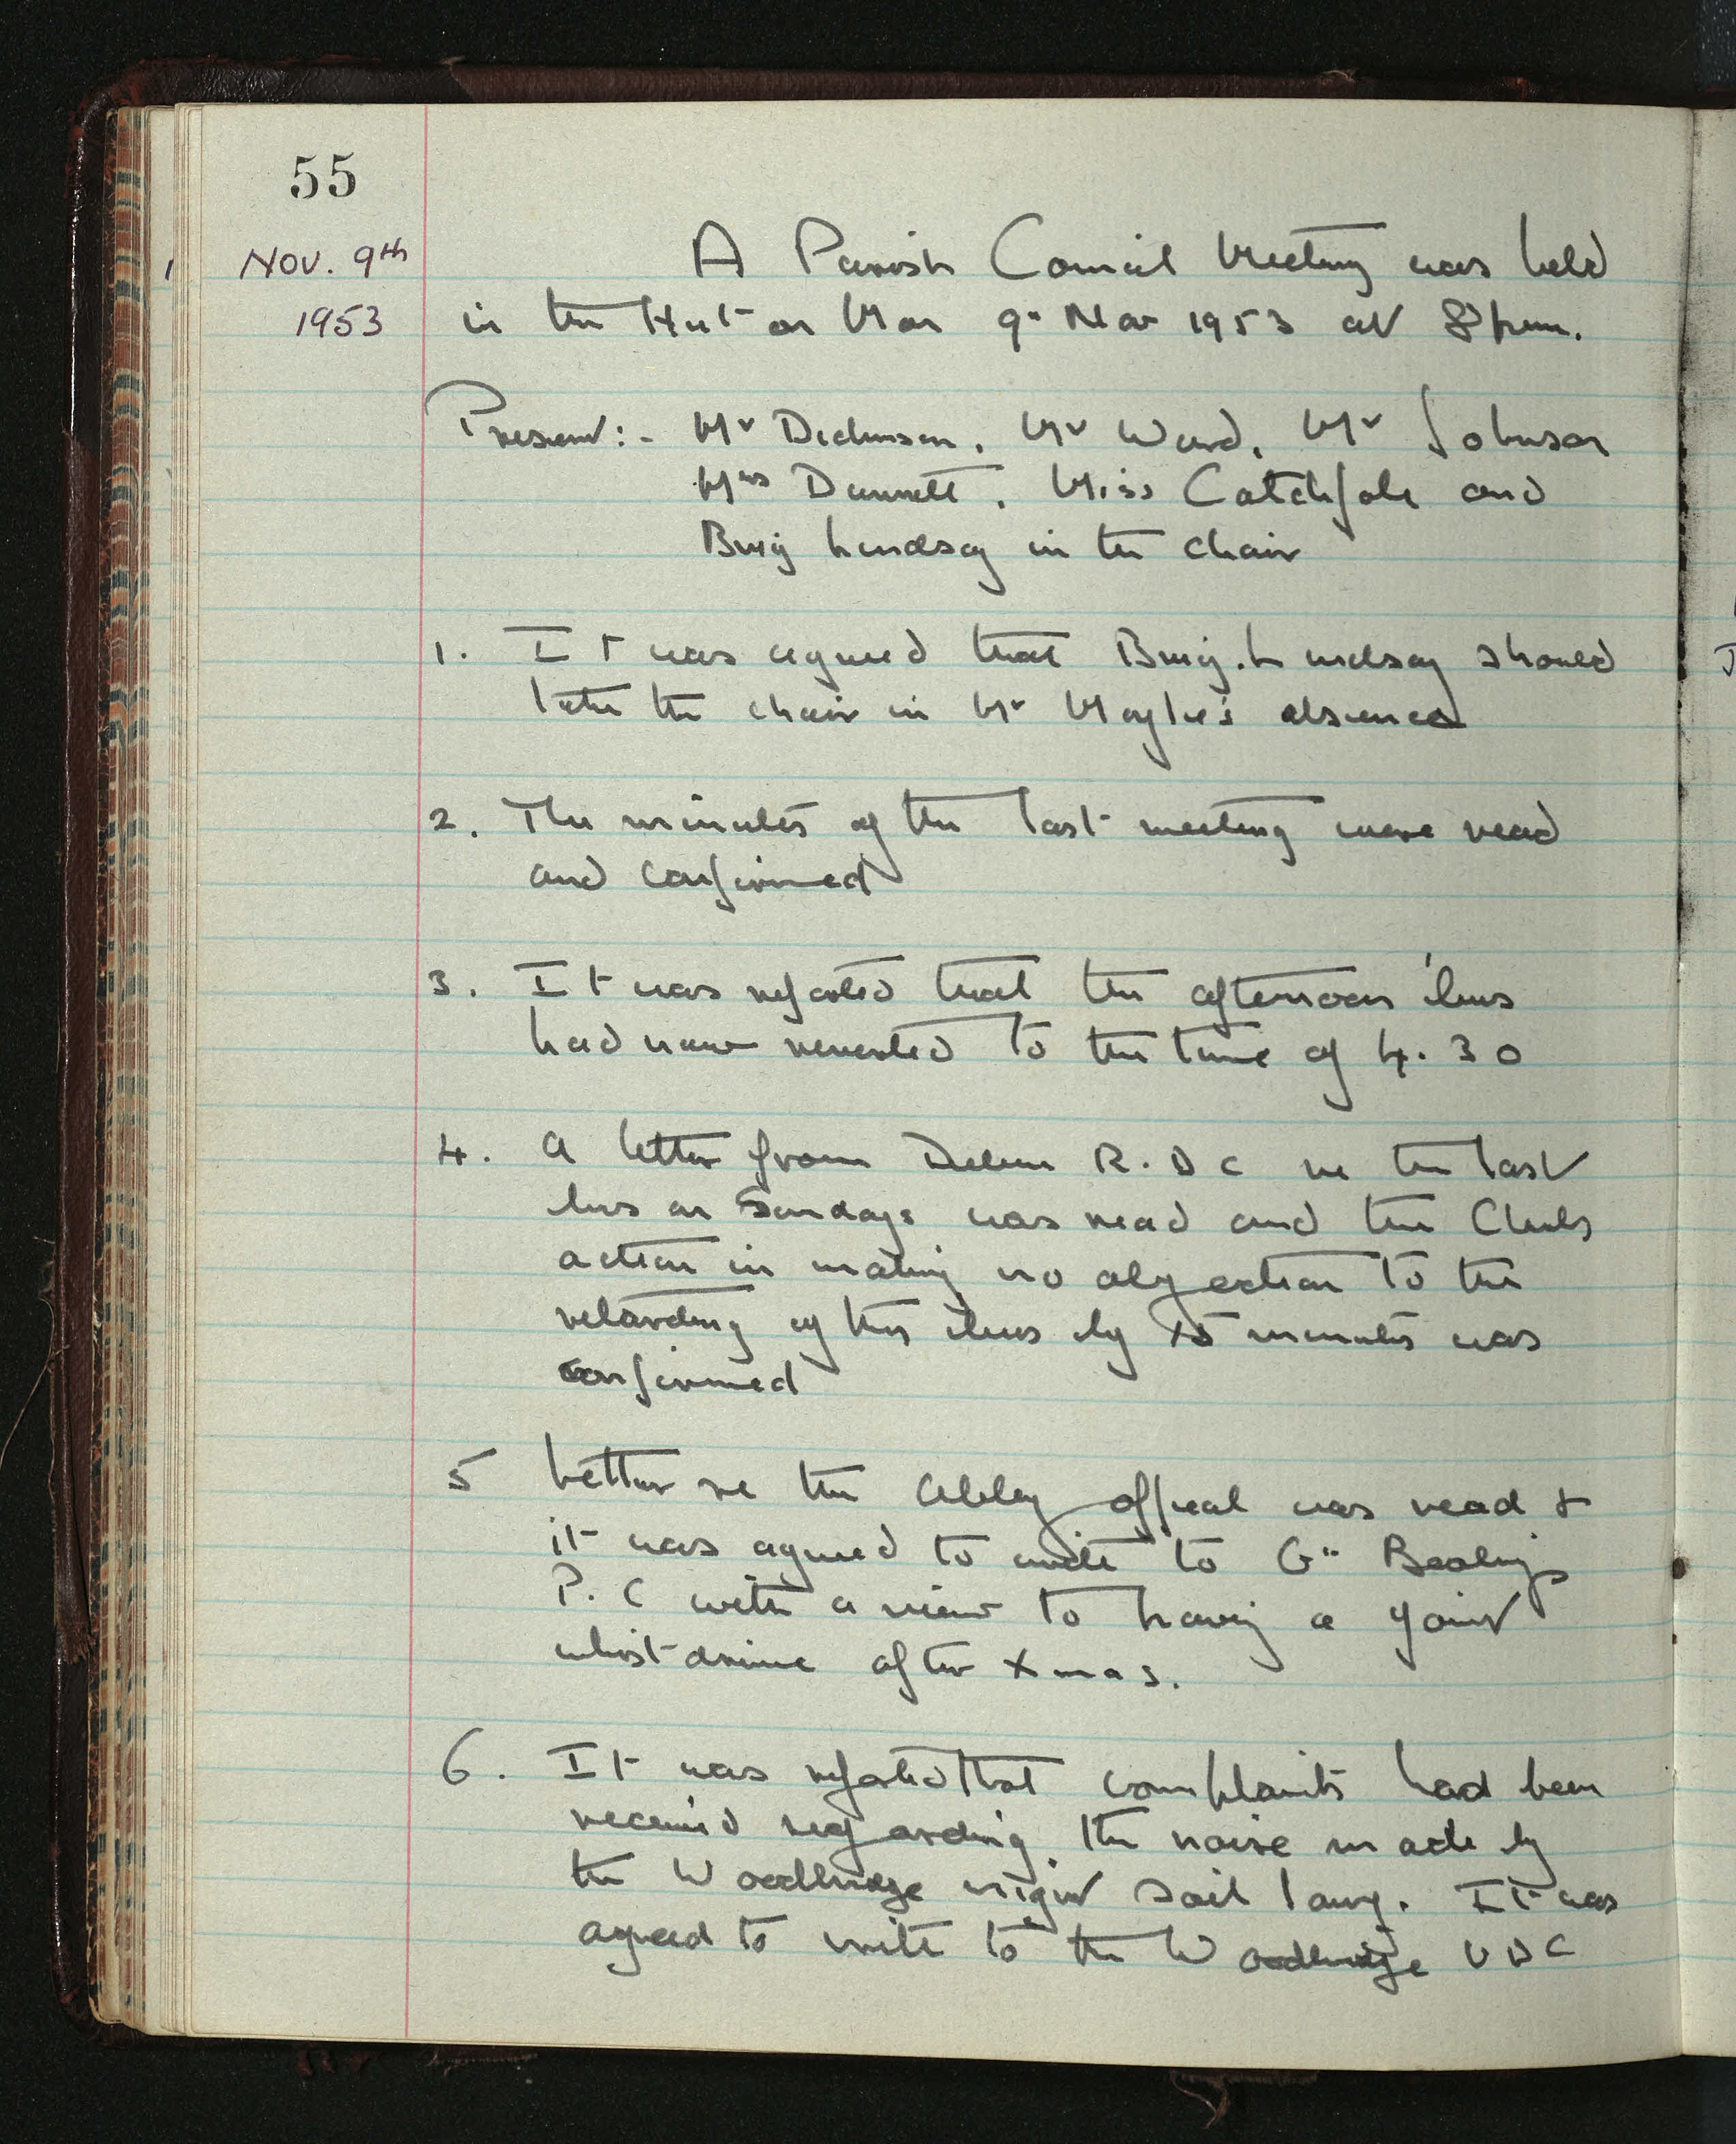 55
Nov. 9th
1953
A Parish Council Meeting was held
in the Hut on Mon 9th Nov 1953 at 8 p.m.
Present:- Mr Dickinson, Mr Ward, Mr Johnson
Mrs Dunnett, Miss Catchpole and
Brig Lindsay in the chair
1. It was agreed that Brig. Lindsay should
take the chair in Mr absence
2. The minutes of the last meeting were read
and confirmed
3. It was reported that the afternoon bus
had now reverted to the time of 4.30
4. A letter from Deben R.D.C re the last
bus on Sundays was read and the Clerks
action in making no objection to the
retarding of this bus by 15 minutes was
confirmed
5 Letter re the Abbey appeal was read &
it was agreed to write to Gt Bealings
P.C with a view to having a joint
whist drive after Xmas.
6. It was reported that complaints had been
received regarding the noise made by
the Woodbridge night soil lorry. It was
agreed to write to the Woodbridge UDC